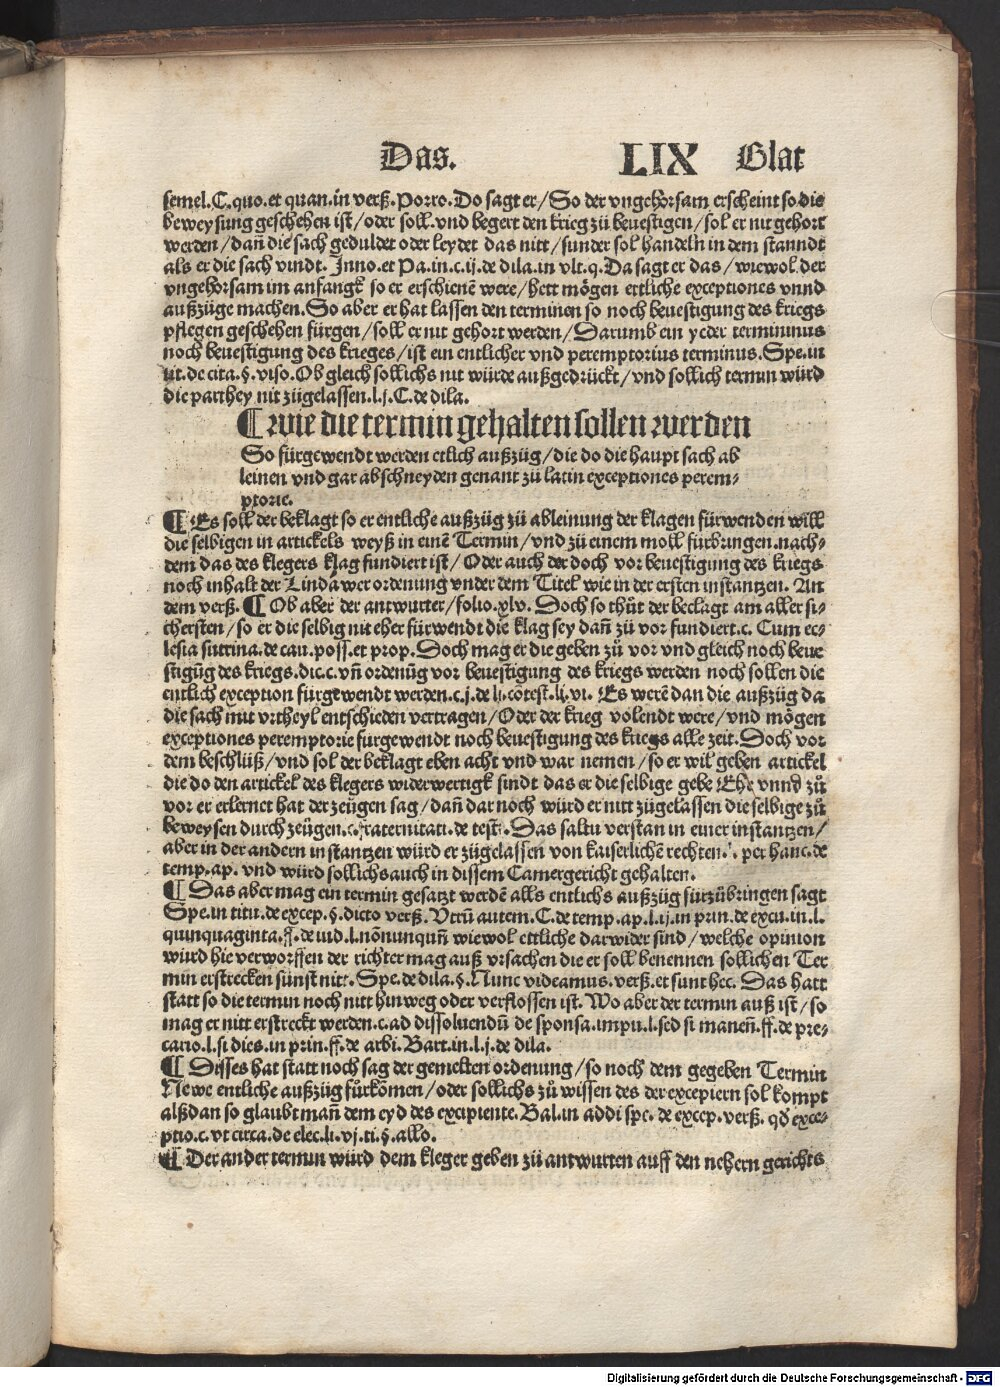 Das. LIX Blat
semel.C.quo.et quan.in verß.Porro.Do sagt er/So der vngehorsam erscheint so die
beweysung geschehen ist/oder soll.vnd begert den krieg zů beuestigen/sol er nit gehort
werden/dañ die sach geduldet oder leydet das nitt/sunder sol handeln in dem stanndt
als er die sach vindt. Inno.et Pa.in.c.ij.de dila.in vlt.q.Da sagt er das/wiewol der
vngehorsam im anfangk so er erschienē were/hett mögen ettliche exceptiones vnnd
außzüge machen.So aber er hat lassen den terminen so noch beuestigung des kriegs
pflegen geschehen fürgen/soll er nit gehort werden/Darumb ein yeder termininus
noch beuestigung des krieges/ist ein entlicher vnd peremptorius terminus.Spe.in
tit.de cita.§.viso.Ob gleich sollichs nit würde außgedrückt/vnd sollich termin würd
die parthey nit zůgelassen.l.j.C.de dila.
¶ wie die termin gehalten sollen werden
So fürgewendt werden etlich außzüg/die do die haupt sach ab
leinen vnd gar abschneyden genant zů latin exceptiones perem-
ptorie.
¶ Es soll der beklagt so er entliche außzüg zů ableinung der klagen fürwenden will
die selbigen in artickels weyß in einē Termin/vnd zů einem moll fürbringen.nach-
dem das des klegers klag fundiert ist/Oder auch der doch vor beuestigung des kriegs
noch inhalt der Lindawer ordenung vnder dem Titel wie in der ersten instantzen. An
dem verß.¶ Ob aber der antwurter/folio.xlv. Doch so thůt der beclagt am aller si-
chersten/so er die selbig nit eher fürwendt die klag sey dañ zů vor fundiert.c. Cum ec-
lesia sutrina.de cau.poss.et prop.Doch mag er die geben zů vor vnd gleich noch beue
stigūg des kriegs.dic.c.vñ ordenūg vor beuestigung des kriegs werden noch sollen die
entlich exception fürgewendt werden.c.j.de li.cōtest.lj.vi. Es werē dan die außzüg da
die sach mit vrtheyl entschieden vertragen/Oder der krieg volendt were/vnd mögen
exceptiones peremptorie fürgewendt noch beuestigung des kriegs alle zeit.Doch vor
dem beschlüß/vnd sol der beklagt eben acht vnd war nemen/so er wil geben artickel
die do den artickel des klegers widerwertigk sindt das er die selbige gebe Ehe vnnd zů
vor er erlernet hat der zeügen sag/dañ dar noch würd er nitt zůgelassen die selbige zů
beweysen durch zeügen.c.fraternitati.de test.Das saltu verstan in einer instantzen/
aber in der andern instantzen würd er zůgelassen von kaiserlichē rechten. per hanc.de
temp.ap. vnd würd sollichs auch in dissem Camergericht gehalten.
¶ Das aber mag ein termin gesatzt werdē alls entlichs außzüg fürzübringen sagt
Spe.in titu.de excep.§.dicto verß.Vtrū autem.C.de temp.ap.l.ij.in prin.de excu.in.l.
quinquaginta.ff.de iud.l.nōnunquñ wiewol ettliche darwider sind/welche opinion
würd hie verworffen der richter mag auß vrsachen die er soll benennen sollichen Ter
min erstrecken sünst nitt.Spe.de dila.§.Nunc videamus.verß.et sunt hec. Das hatt
statt so die termin noch nitt hinweg oder verflossen ist. Wo aber der termin auß ist/so
mag er nitt erstreckt werden.c.ad dissoluendū de sponsa.impu.l.sed si maneñ.ff.de pre-
cario.l.si dies.in prin.ff.de arbi.Bart.in.l.j.de dila.
¶ Disses hat statt noch sag der gemelten ordenung/so noch dem gegeben Termin
Newe entliche außzüg fürkōmen/oder sollichs zů wissen des der excepiern sol kompt
alßdan so glaubt mañ dem eyd des excipiente.Bal.in addi spe.de excep.verß.qđ exce-
ptio.c.vt circa.de elec.li.vj.ti.§.allo.
¶ Der ander termin würd dem kleger geben zů antwurten auff den nehern gerichts
Digitalisierung gefördert durch die Deutsche Forschungsgemeinschaft - DFG